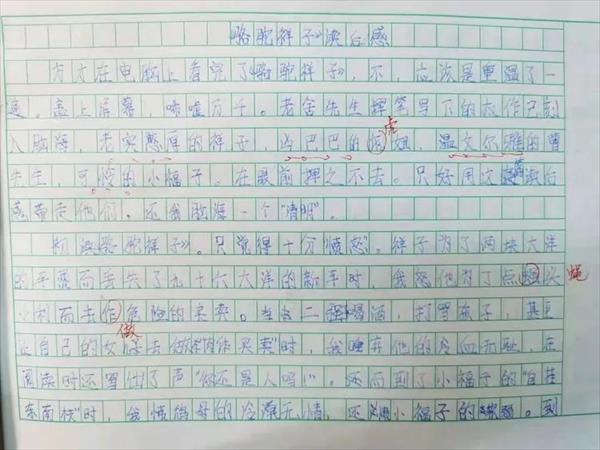 《骆驼祥子》读后感
方才在电脑上看完了《骆驼祥子》，不，应该是重温了一
遍。盖上屏幕，唏嘘万千。老舍先生挥笔写下的大作已刻
入脑海，老实憨厚的祥子，凶巴巴的虎妞，温文尔雅的曹
先生，可怜的小福子。在眼前挥之不去。只好用这篇读后
感带走他们。还我脑海一个“清明”。
初读《骆驼祥子》。只觉得十分“愤怒”。祥子为了两块大洋
的车票而丢失了九十六大洋的新车时，我怒他为了点蝇头
小利而去做危险的买卖。当二强喝酒，打骂妻子，甚至
让自己的女儿去做“皮肉买卖”时，我唾弃他的冷血无耻，在
阅读时还骂出了声“你还是人吗！”。还而到了小福子的“自挂
东南枝”时，我愤的冷漠无情，还小福子的。到
虎
蝇
做